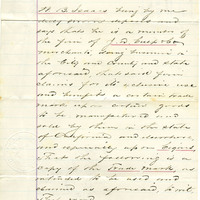 W. B. Isaacs being by me
duly sworn deposes and
says that he is a member of
the firm of
merchants doing business in
the City and County and State
aforesaid, that said firm
claims for its exclusive use
and benefit a certain trade
mark upon certain goods
to be manufactured and
sold by them in the State
of California and elsewhere
and especially upon Liquors
That the following is a
copy of the Trade Mark as
intended to be used and
claimed as aforesaid, to wit